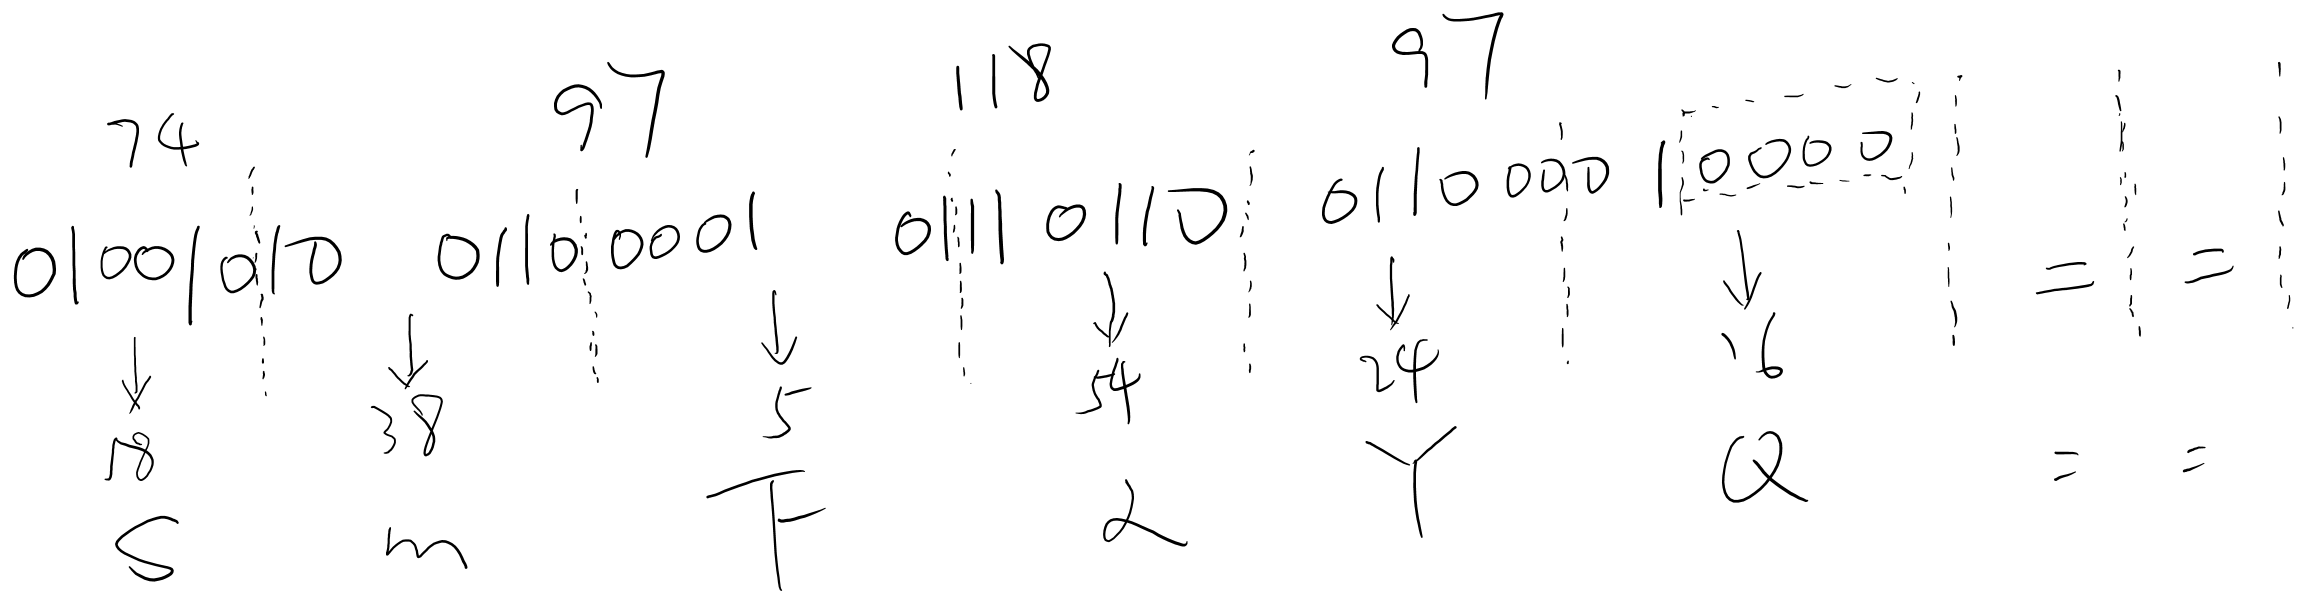 74 97 118 97
01001010 01100001 01110110 01100001 0000
= =
18 38 5 54 24 16
S m F 2 Y Q = =